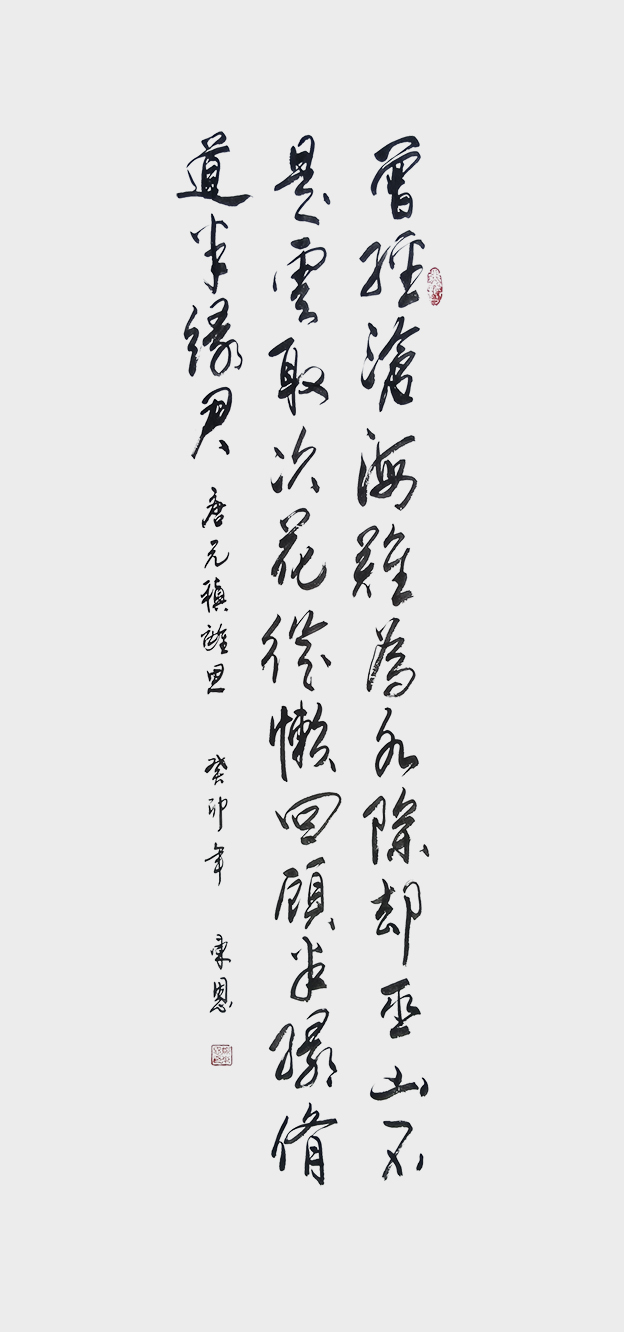 曾經滄海難為水除却巫山不
是雲取次花從懶回顧半緣脩
道半緣君
唐元稹離思 癸卯年 東恩